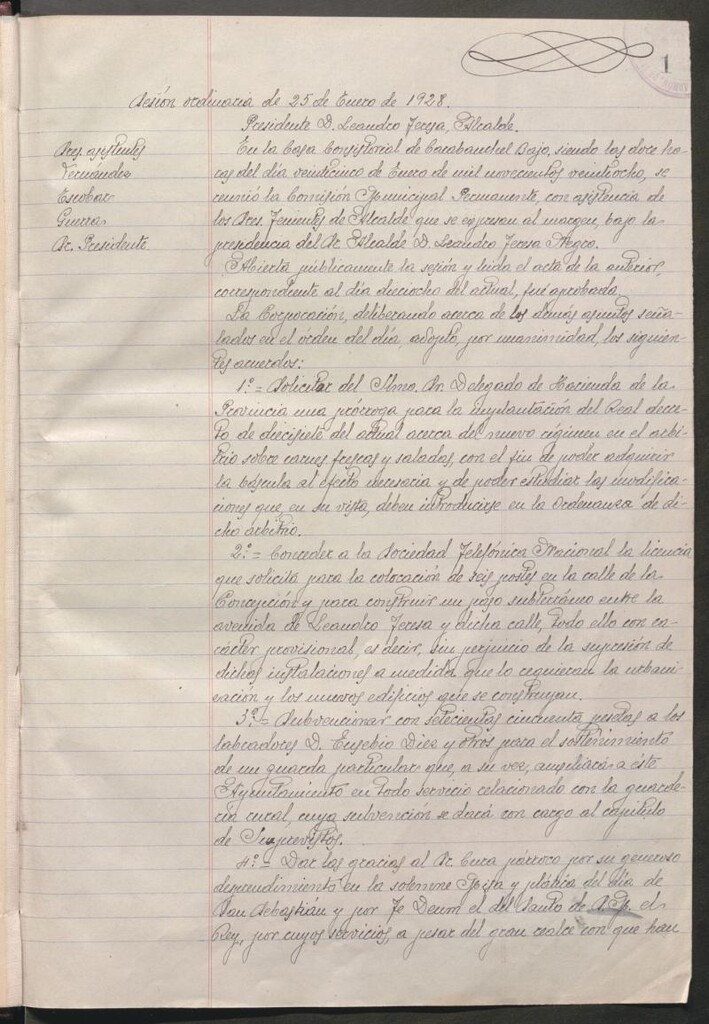 1
Sesión ordinaria de 25 de Enero de 1928.
Presidente D. Leandro Teresa, Alcalde.
Sres. asistentes
Fernández
Escobar
Guerra
Sr. Presidente
En la Casa Consistorial de Carabanchel Bajo, siendo las doce ho-
ras del día veinticinco de Enero de mil novecientos veintiocho, se
reunió la Comisión Municipal Permanente, con asistencia de
los Sres. Tenientes de Alcalde que se expresan al margen, bajo la
presidencia del Sr. Alcalde D. Leandro Teresa Negro.
Abierta públicamente la sesión y leída el acta de la anterior,
correspondiente al día dieciocho del actual, fué aprobada.
La Corporación, deliberando acerca de los demás asuntos seña-
lados en el órden del día, adoptó, por unanimidad, los siguien-
tes acuerdos:
1º.= Solicitar del Ilmo. Sr. Delegado de Hacienda de la
Provincia una prórroga para la implantación del Real decre-
to de diecisiete del actual acerca del nuevo régimen en el arbi-
trio sobre carnes frescas y saladas, con el fin de poder adquirir
la báscula al efecto necesaria y de poder estudiar las modifica-
ciones que, en su vista, deben introducirse en la Ordenanza de di-
cho árbitrio.
2º.= Conceder a la Sociedad Telefónica Nacional la licencia
que solicita para la colocación de seis postes en la calle de la
Concepción y para construir un paso subterráneo entre la
avenida de Leandro Teresa y dicha calle, todo ello con ca-
rácter provisional, es decir, sin perjuicio de la supresión de
dichas instalaciones a medida que lo requieran la urbani-
zación y los nuevos edificios que se construyan.
3º.= Subvencionar con setecientas cincuenta pesetas a los
labradores D. Eusebio Diez y otros para el sostenimiento
de un guarda particular que, a su vez, auxiliará a éste
Ayuntamiento en todo servicio relacionado con la guarde-
ría rural, cuya subvención se dará con cargo al capítulo
de Imprevistos.
4º.= Dar las gracias al Sr. Cura párroco por su generoso
desprendimiento en la solemne Misa y plática del día de
San Sebastián y por Te Deum el del Santo de S.M. el
Rey, por cuyos servicios, a pesar del gran realce con que han